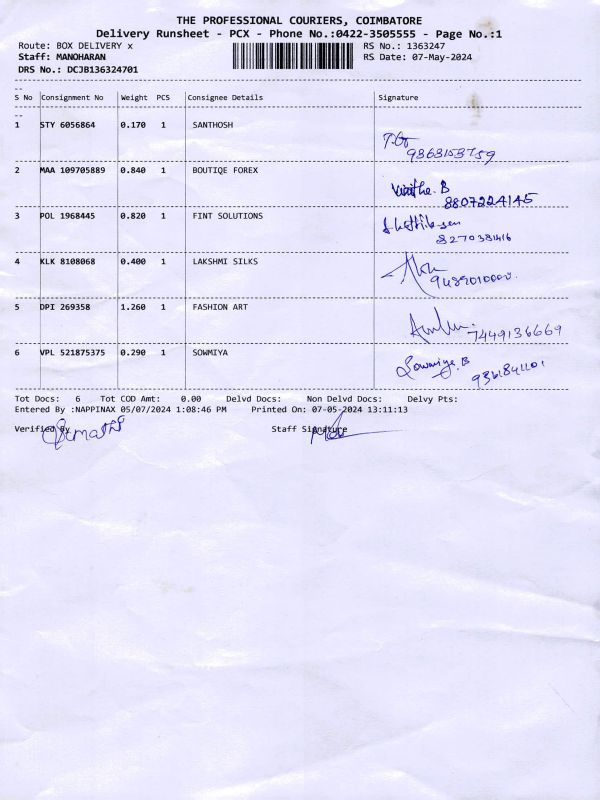 THE PROFESSIONAL COURIERS, COIMBATORE
Delivery Runsheet - PCX - Phone No.:0422-3505555 - Page No.:1
Route: BOX DELIVERY x RS No.: 1363247
Staff: MANOHARAN RS Date: 07-May-2024
DRS No.: DCJB136324701
S No Consignment No Weight PCS Consignee Details Signature
1 STY 6056864 0.170 1 SANTHOSH
9363153759
2 MAA 109705889 0.840 1 BOUTIQE FOREX
8807224145
3 POL 1968445 0.820 1 FINT SOLUTIONS
4 KLK 8108068 0.400 1 LAKSHMI SILKS
5 DPI 269358 1.260 1 FASHION ART
7449136669
6 VPL 521875375 0.290 1 SOWMIYA
Sowmiya.B
Tot Docs: 6 Tot COD Amt: 0.00 Delvd Docs: Non Delvd Docs: Delvy Pts:
Entered By :NAPPINAX 05/07/2024 1:08:46 PM Printed On: 07-05-2024 13:11:13
Verified By Staff Signature